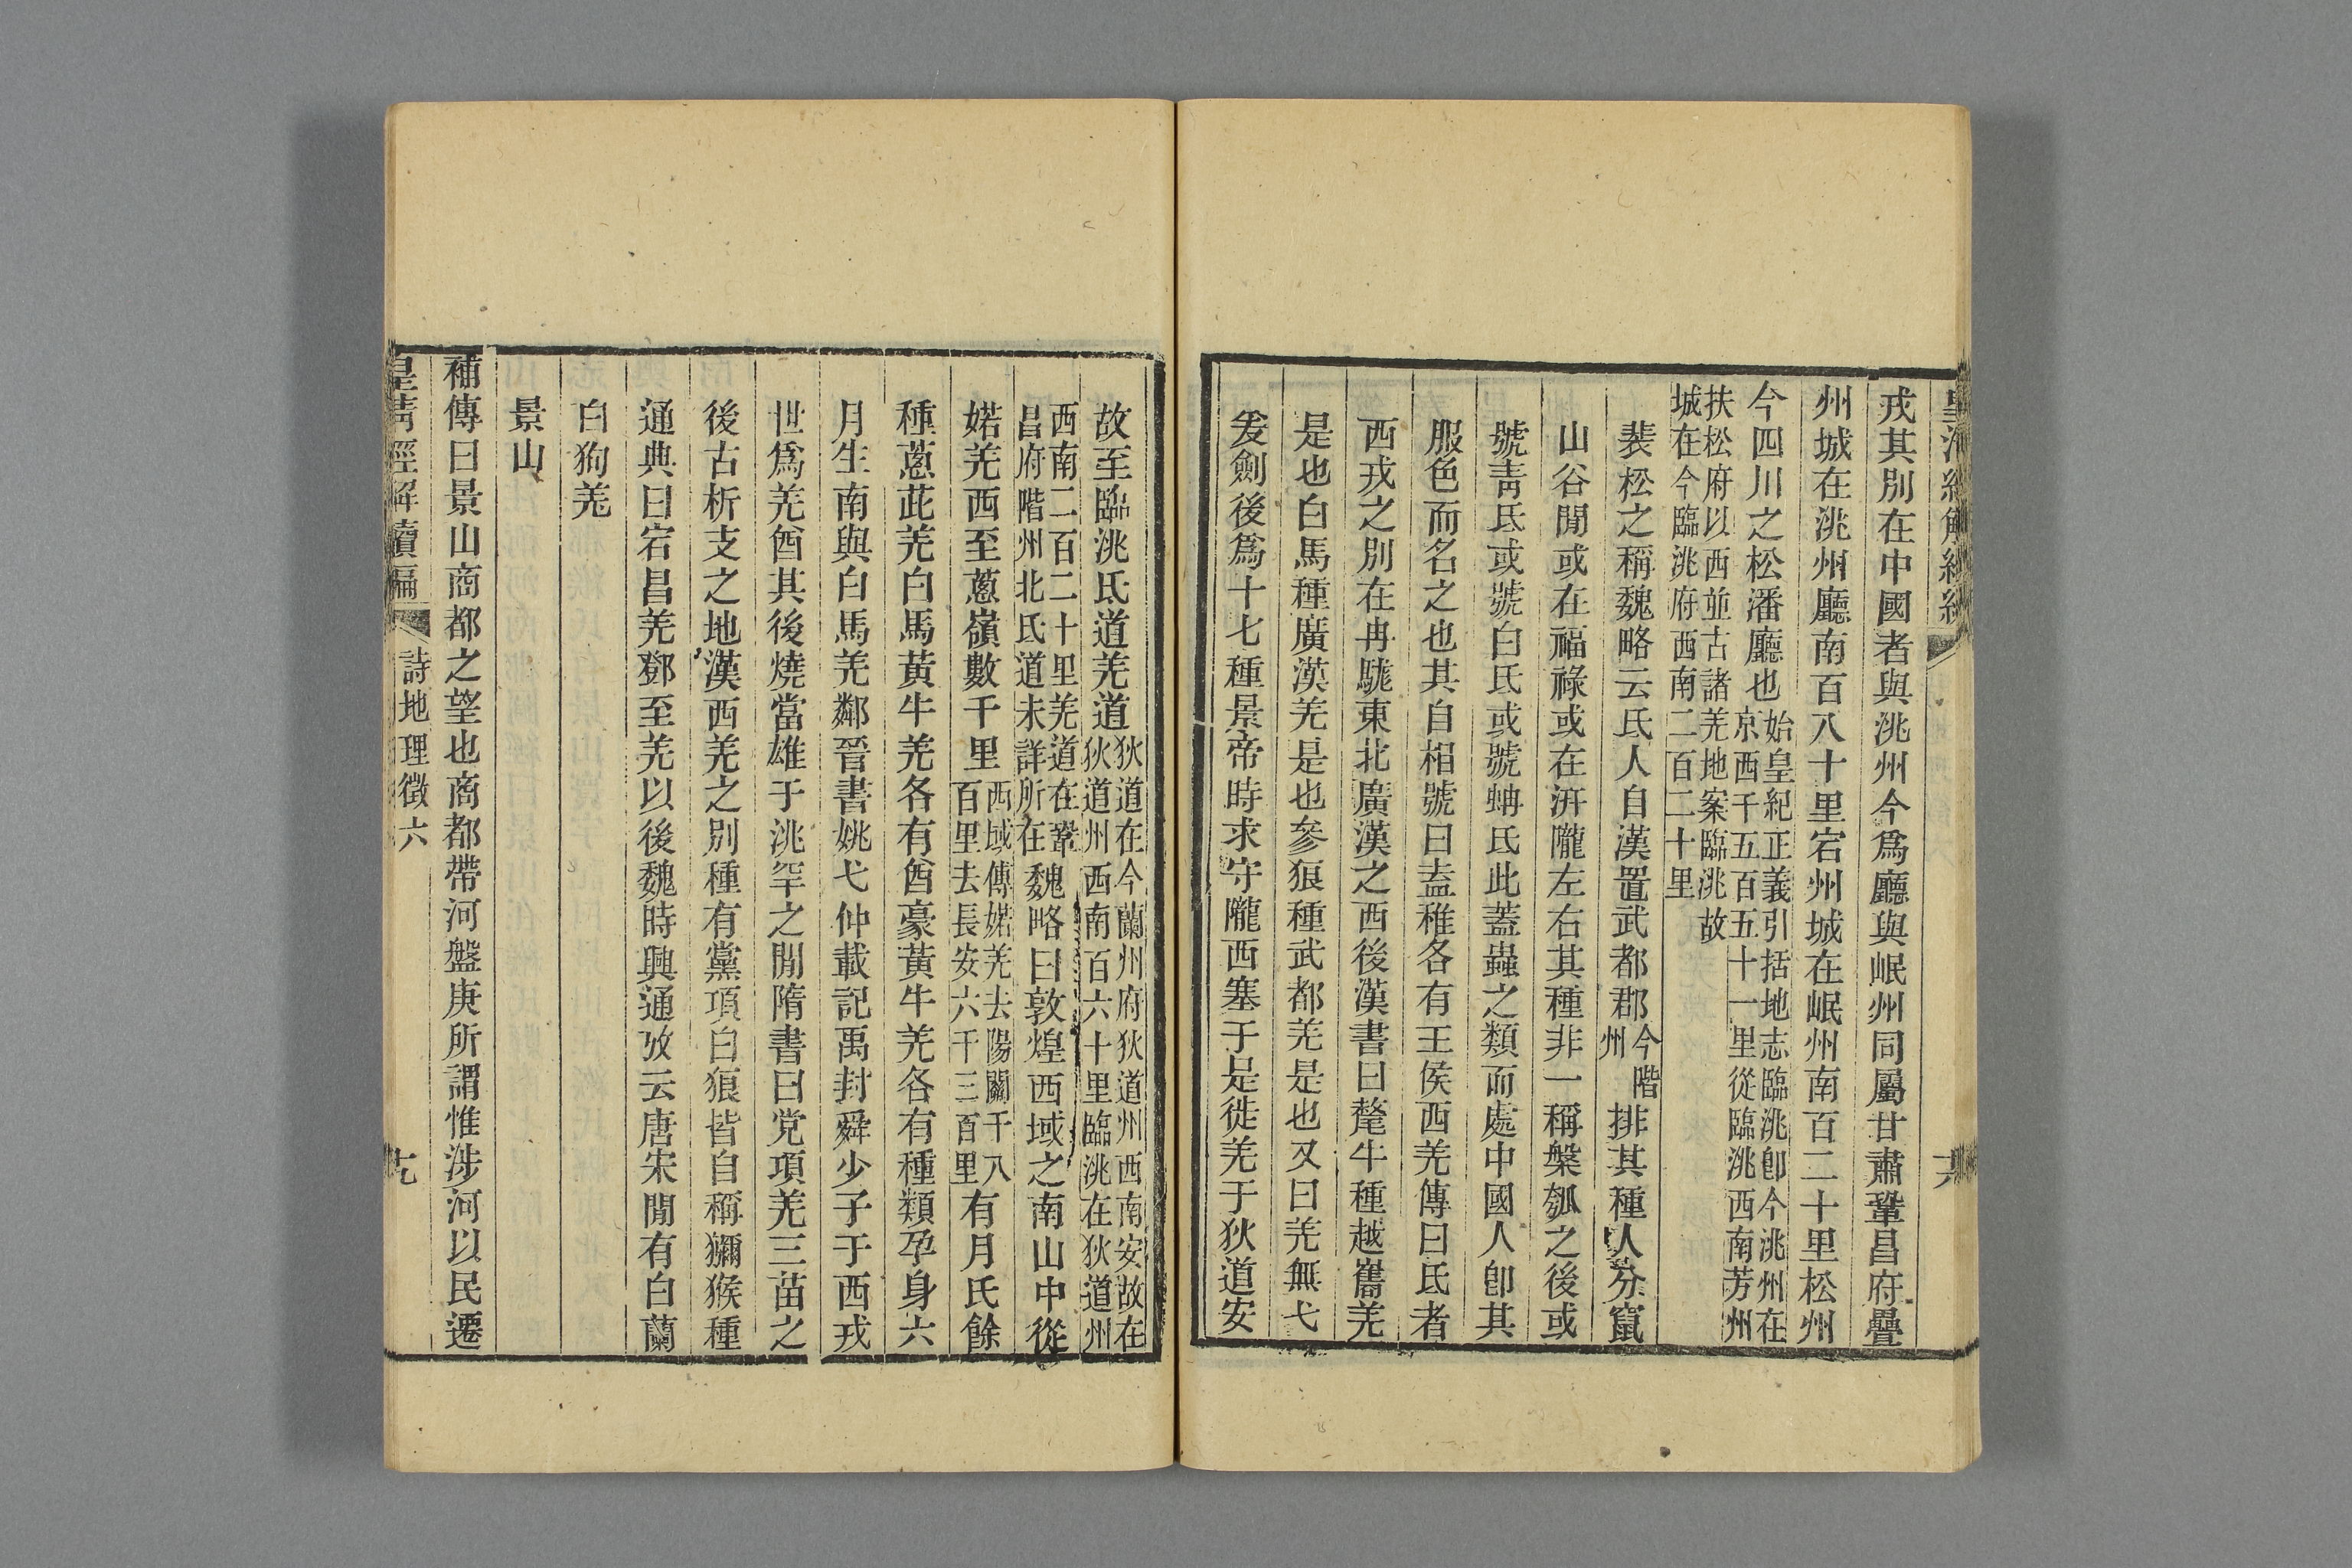 戎其別在中國者與洮州今爲廳與岷州同屬甘肅鞏昌府疊
州城在洮州廳南百八十里宕州城在岷州南百二十里松州
今四川之松潘廳也始皇紀正義引括地志臨洮卽今洮州在
京西千五百五十一里從臨洮西南芳州
扶松府以西並古諸羌地案臨洮故
城在今臨洮府西南二百二十里
裴松之稱魏略云氐人自漢置武都郡今階
州排其種人分竄
山谷閒或在福祿或在汧隴左右其種非一稱槃瓠之後或
號靑氐或號白氐或號蚺氐此蓋蟲之類而處中國人卽其
服色而名之也其自相號曰盍稚各有王侯西羌傳曰氐者
西戎之別在冉駹東北廣漢之西後漢書曰氂牛種越巂羌
是也白馬種廣漢羌是也參狼種武都羌是也又曰羌無弋
爰劍後爲十七種景帝時求守隴西塞于是徙羌于狄道安
故至臨洮氐道羌道狄道在今蘭州府狄道州西南安故在
狄道州西南百六十里臨洮在狄道州
西南二百二十里羌道在鞏
昌府階州北氐道未詳所在魏略曰敦煌西域之南山中從
婼羌西至蔥嶺數千里西域傳婼羌去陽關千八
百里去長安六千三百里有月氏餘
種蔥茈羌白馬黃牛羌各有酋豪黃牛羌各有種類孕身六
月生南與白馬羌鄰晉書姚弋仲載記禹封舜少子于西戎
世爲羌酋其後燒當雄于洮罕之閒隋書曰党項羌三苗之
後古析支之地漢西羌之別種有黨項白狼皆自稱獼猴種
通典曰宕昌羌鄧至羌以後魏時興通攷云唐宋閒有白蘭
白狗羌
景山
補傳曰景山商都之望也商都帶河盤庚所謂惟涉河以民遷
皇淸經解續編
詩地理徵六